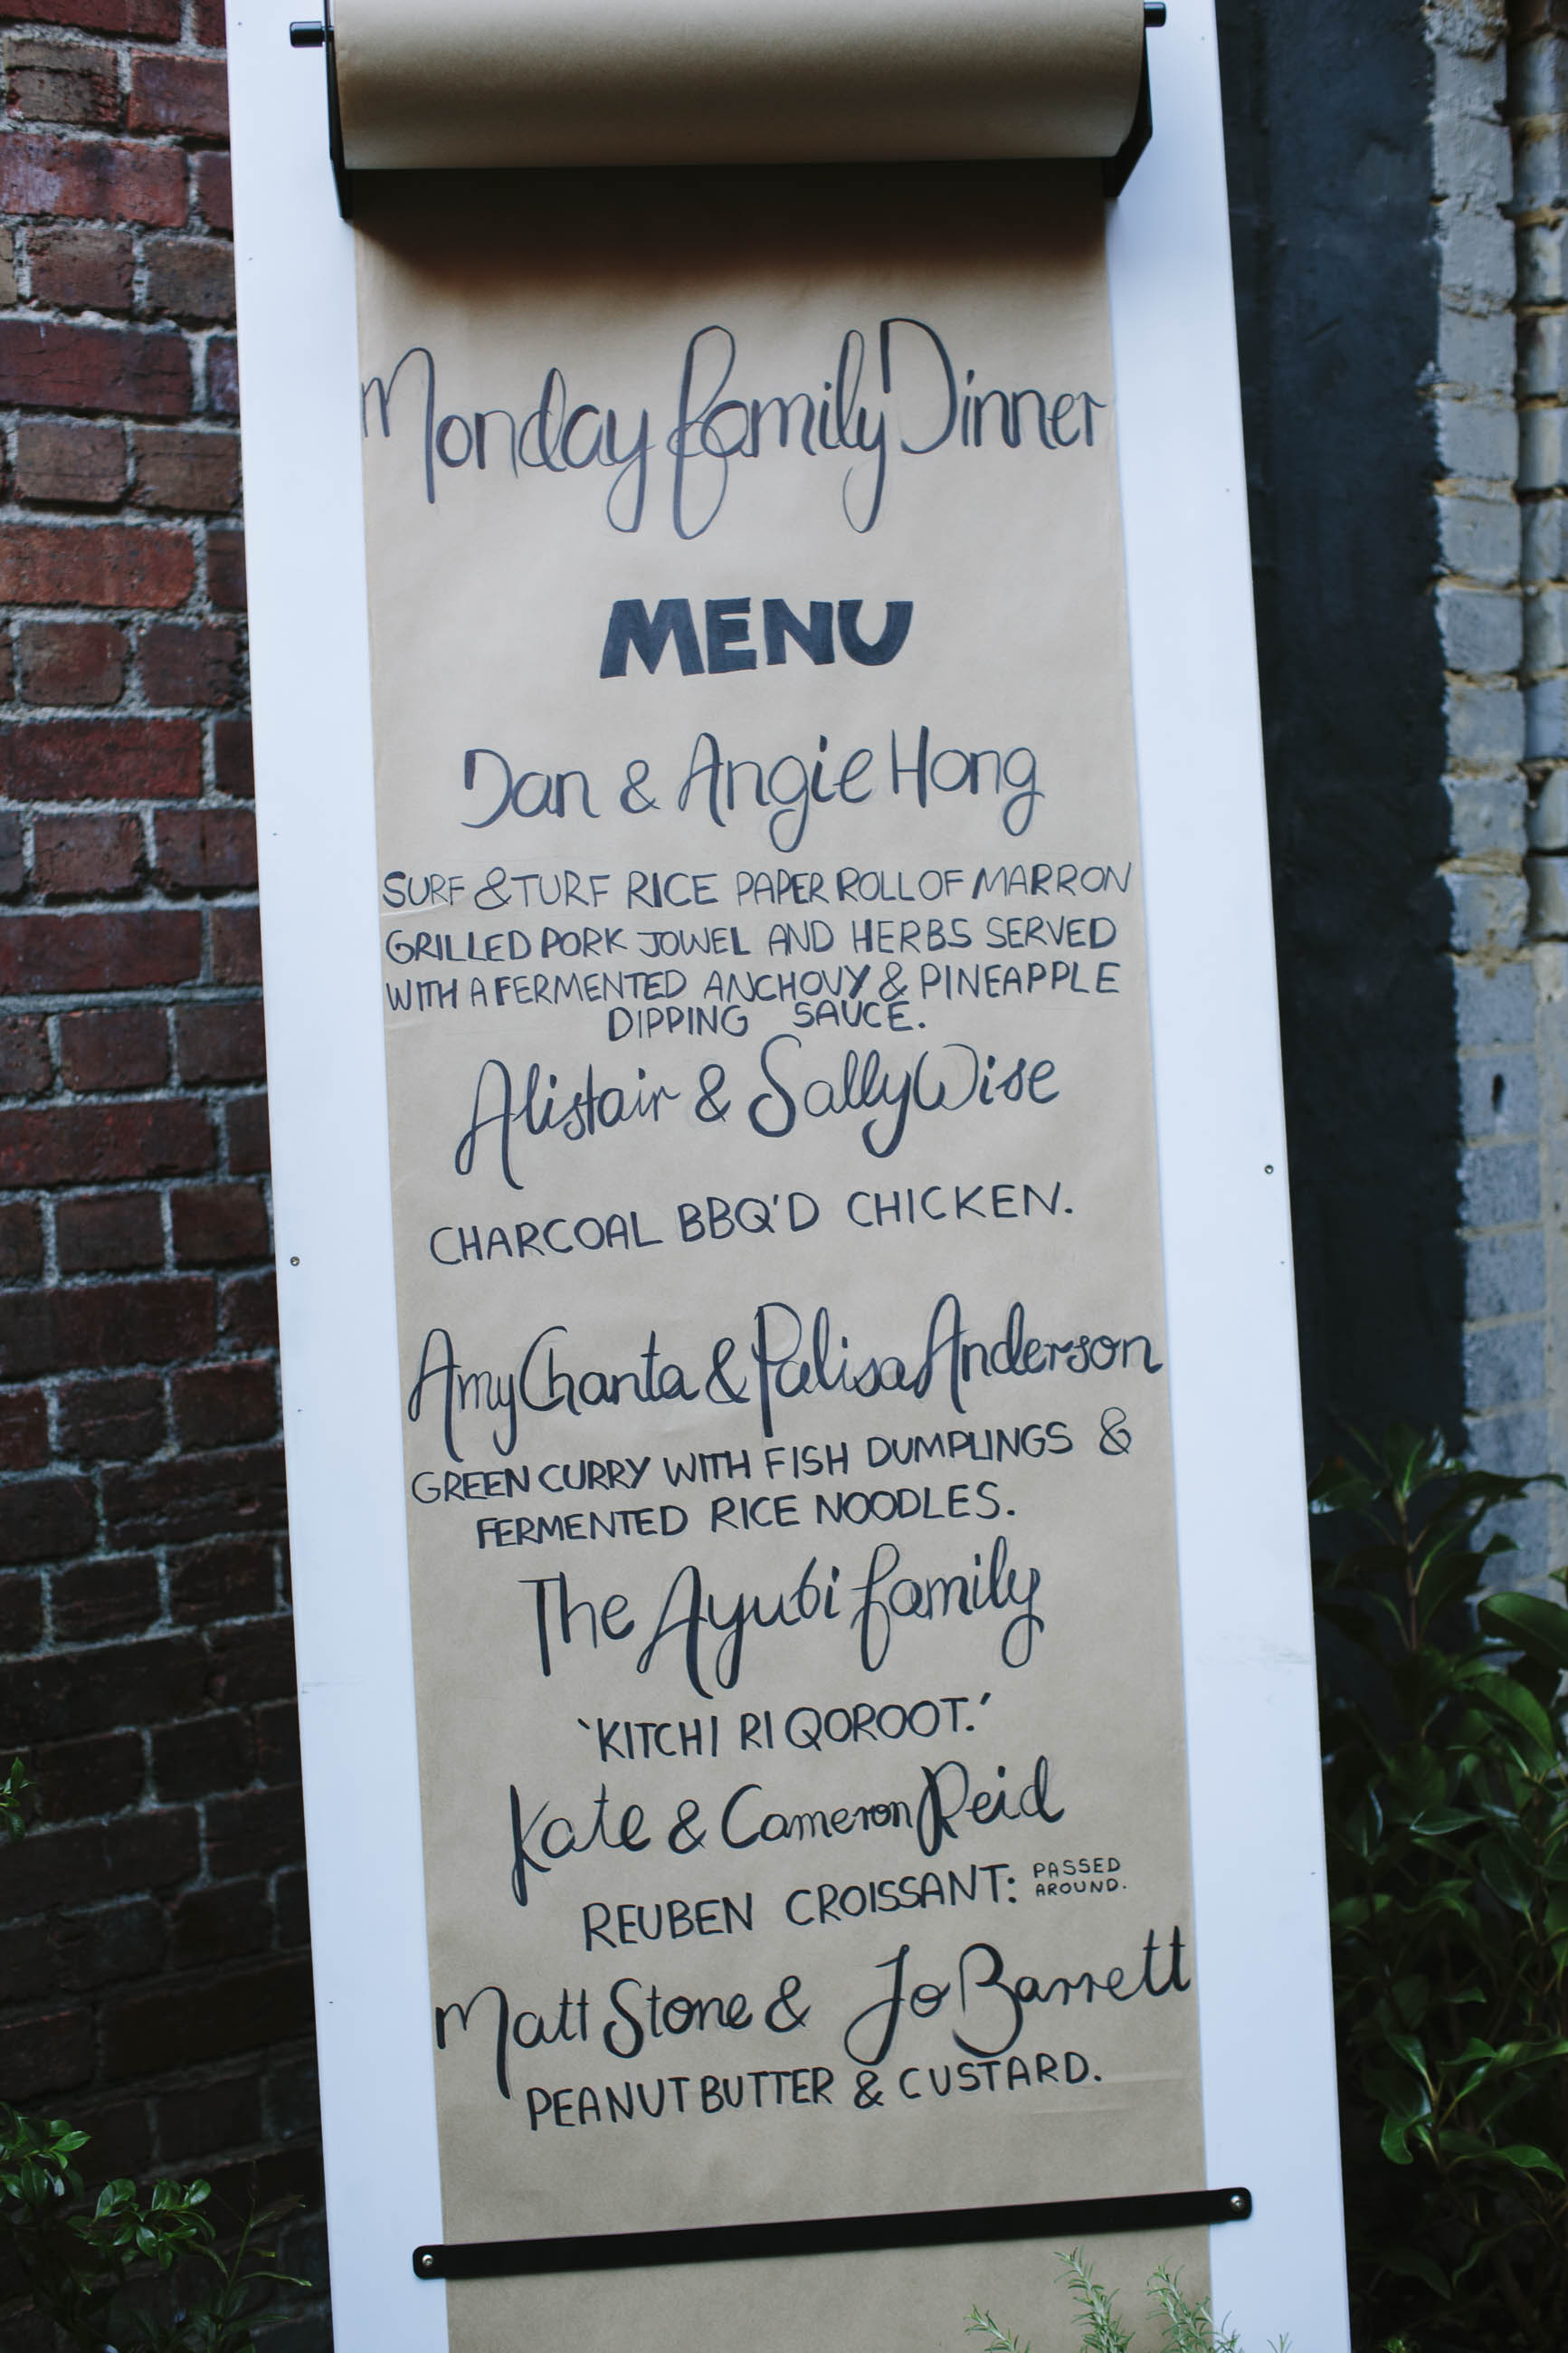 Monday Family Dinner
MENU
Dan & Angie Hong
SURF & TURF RICE PAPER ROLL OF MARRON
GRILLED PORK JOWEL AND HERBS SERVED
WITH A FERMENTED ANCHOVY & PINEAPPLE
DIPPING SAUCE.
Alistair & Sally Wise
CHARCOAL BBQ'D CHICKEN.
Amy Chanta & Palisa Anderson
GREEN CURRY WITH FISH DUMPLINGS &
FERMENTED RICE NOODLES.
The Ayubi family
'KITCHI RI QOROOT.'
Kate & Cameron Reid
REUBEN CROISSANT: PASSED
AROUND.
Matt Stone & Jo Barrett
PEANUT BUTTER & CUSTARD.